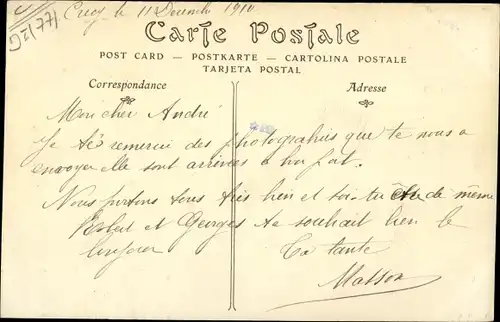 DEI(77)
Crecy le 11 Decembre 1910
Carte Postale
POST CARD — POSTKARTE — CARTOLINA POSTALE
TARJETA POSTAL
Correspondance
Adresse
Mon cher André
Je te remercie des photographies que te nous a
envoyer elle sont arrivées a bon port.
Nous portons tous très bien et toi de même
et Georges te souhait bien le
bonjour
Ta tante
Masson